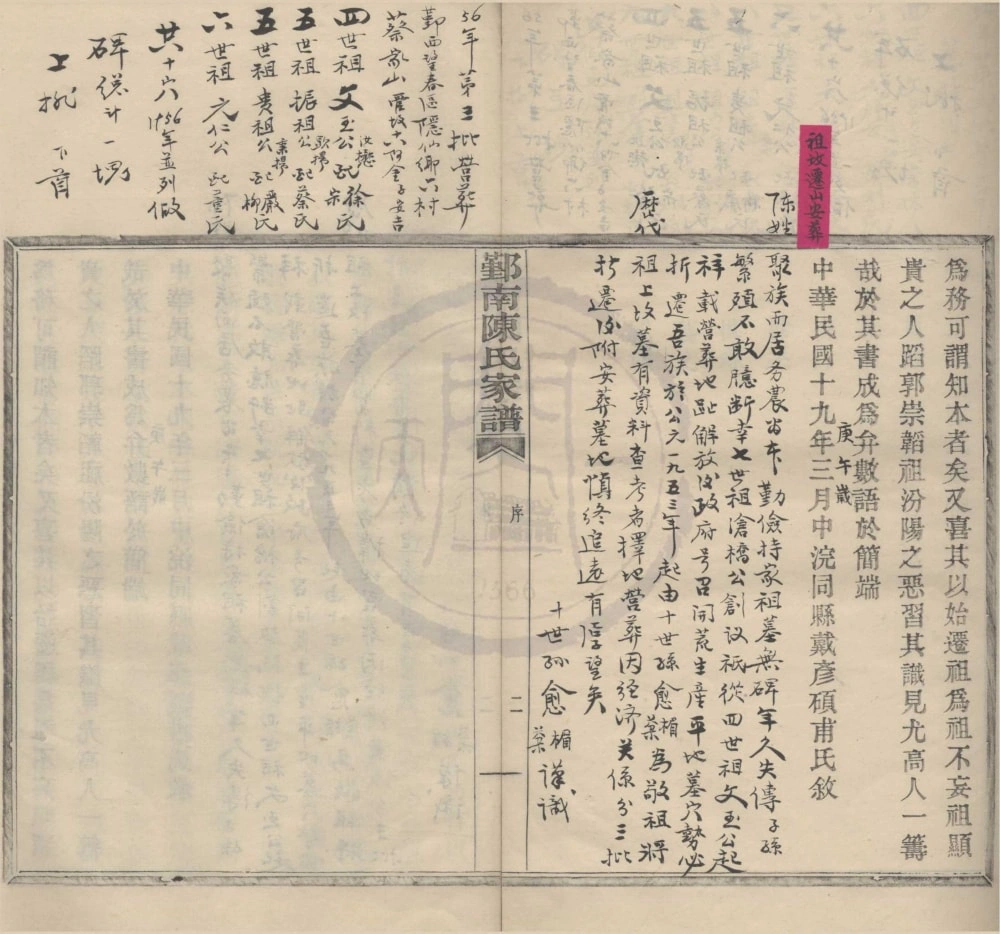 爲務可謂知本者矣又喜其以始遷祖爲祖不妄祖顯
貴之人蹈郭崇韜祖汾陽之惡習其識見尤高人一籌
哉於其書成爲弁數語於簡端
庚午歲
中華民國十九年三月中浣同縣戴彥碩甫氏敘
祖坟遷山安葬
陈姓
聚族而居务農为本勤儉持家祖墓無碑年久失傳子孫
繁頭不敢臆断幸七世祖滄橋公創议祇從四世祖文玉公起
祥載營葬地趾解放后政府号召開荒生産平地墓穴勢必
折遷吾族於公元一九五三年起由十世孫愈楣葉為敬祖将
歷代
祖上坟墓有資料查考者擇地营葬因經济关係分三批
拆遷后附安葬墓地慎終追遠有厚望矣
十世孙愈楣葉谨識
鄞南陳氏家譜
序
二
56年第三批营葬
鄞西望春区隐仙鄉六村
蔡家山
四世祖文玉公配徐氏宗
五世祖振祖公配蔡氏
五世祖贵祖公配嚴氏柳
六世祖元仁公配董氏
共十六穴1956年並列做
碑総计一塊
上排下首